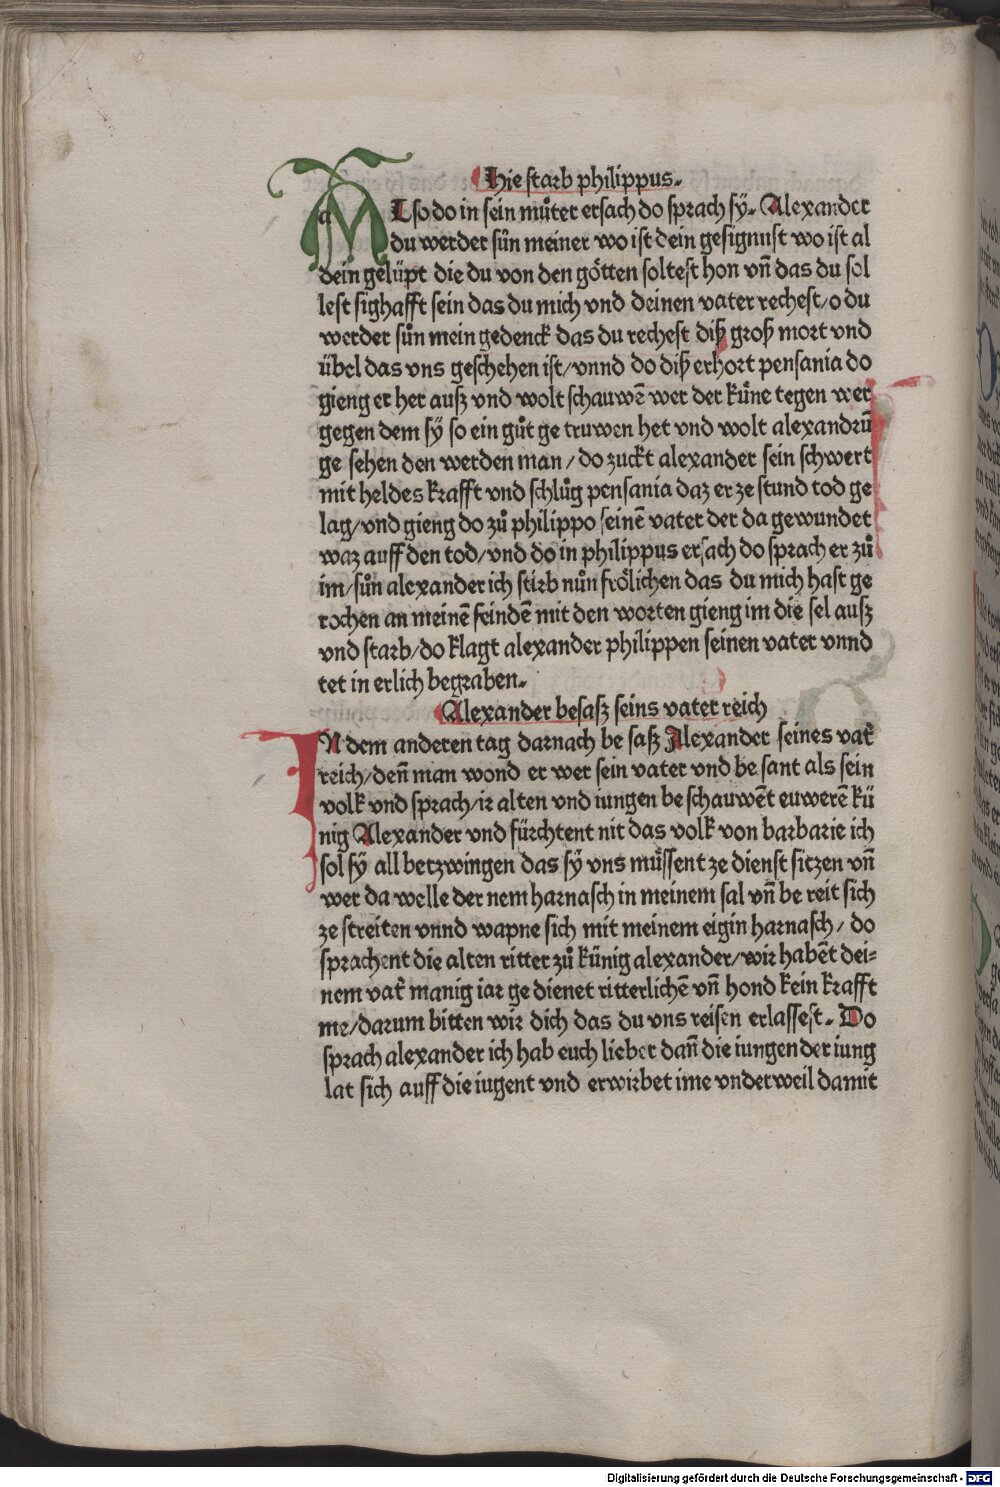 Hie starb philippus.
ALso do in sein můter ersach do sprach sÿ. Alexander
du werder sůn meiner wo ist dein gesignust wo ist al
dein gelüpt die du von den götten soltest hon vn̄ das du sol
lest sighafft sein das du mich vnd deinen vater rechest/o du
werder sůn mein gedenck das du rechest diß groß mort vnd
übel das vns geschehen ist/vnnd do diß erhort pensania do
gieng er her auß vnd wolt schauwē wer der küne tegen wer
gegen dem sÿ so ein gůt ge truwen het vnd wolt alexandrū
ge sehen den werden man/do zuckt alexander sein schwert
mit heldes krafft vnd schlůg pensania daz er ze stund tod ge
lag/vnd gieng do zů philippo seinē vater der da gewundet
waz auff den tod/vnd do in philippus ersach do sprach er zů
im/sůn alexander ich stirb nůn frölichen das du mich hast ge
rochen an meinē feindē mit den worten gieng im die sel auß
vnd starb/do klagt alexander philippen seinen vater vnnd
tet in erlich begraben.
Alexander besaß seins vater reich
IN dem anderen tag darnach be saß Alexander seines vat̄
reich/den̄ man wond er wer sein vater vnd be sant als sein
volk vnd sprach/ir alten vnd iungen be schauwēt euwerē kü
nig Alexander vnd fürchtent nit das volk von barbarie ich
sol sÿ all betzwingen das sÿ vns müssent ze dienst sitzen vn̄
wer da welle der nem harnasch in meinem sal vn̄ be reit sich
ze streiten vnnd wapne sich mit meinem eigin harnasch/do
sprachent die alten ritter zů künig alexander/wir habēt dei=
nem vat̄ manig iar ge dienet ritterlichē vn̄ hond kein krafft
me/darum bitten wir dich das du vns reisen erlassest. Do
sprach alexander ich hab euch lieber dan̄ die iungen der iung
lat sich auff die iugent vnd erwirbet ime vnderweil damit
Digitalisierung gefördert durch die Deutsche Forschungsgemeinschaft - DFG